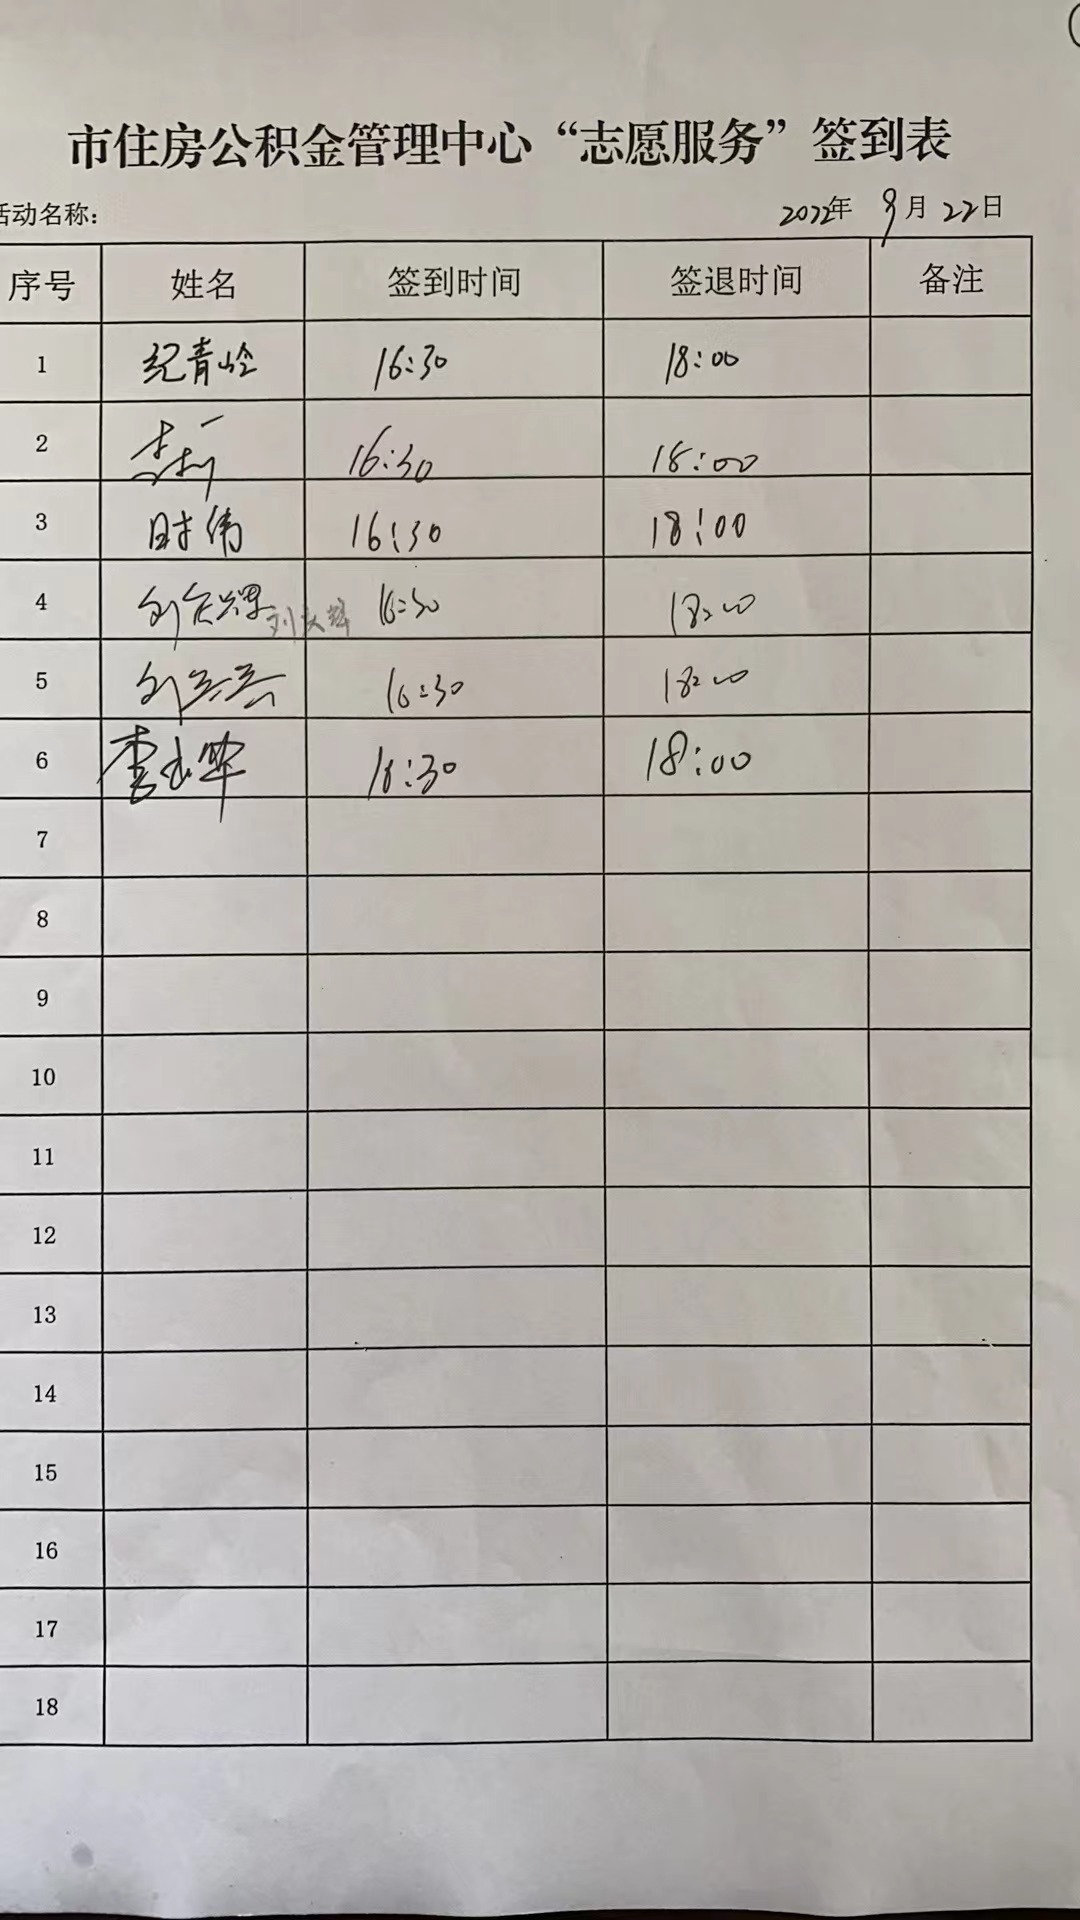 市住房公积金管理中心“志愿服务”签到表
活动名称: 2022年 9月 22日
序号 姓名 签到时间 签退时间 备注
1 纪青岭 16:30 18:00
2 16:30 18:00
3 时伟 16:30 18:00
4 16:30 18:00
5 16:30 18:00
6 16:30 18:00
7
8
9
10
11
12
13
14
15
16
17
18